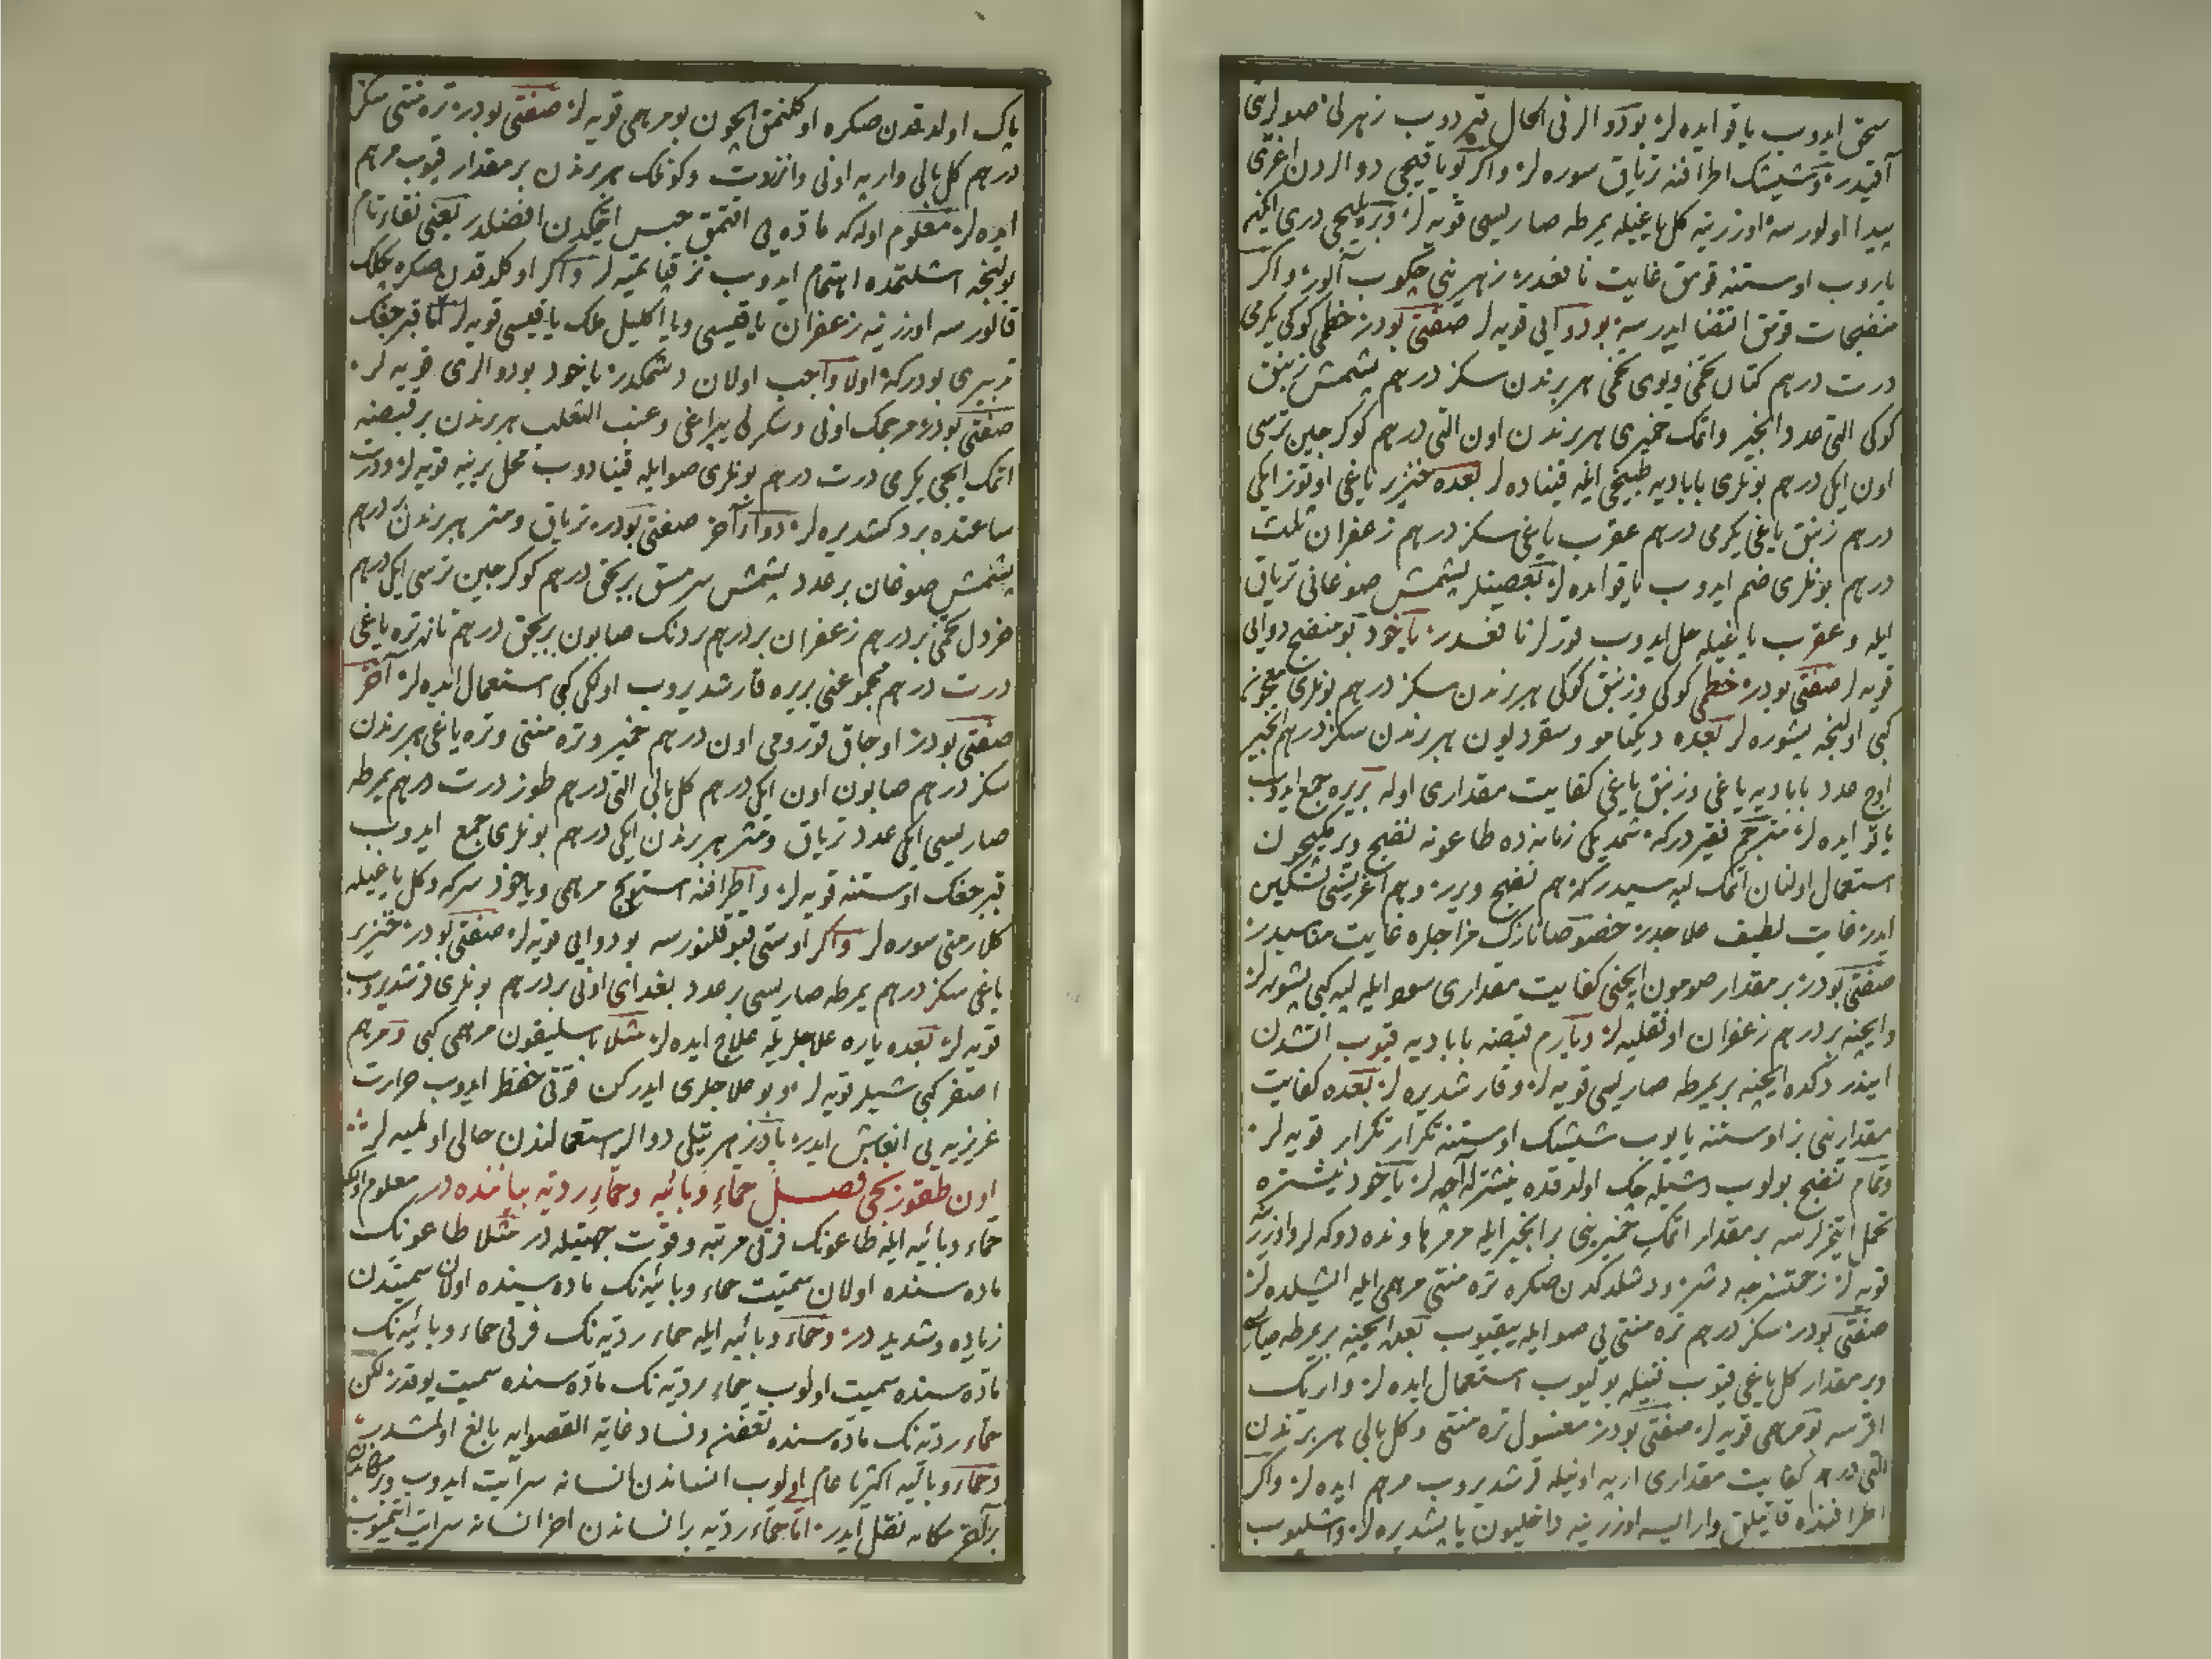 سحق ایدوب یاقو ایده لر بو دوالر فی الحال قبردوب زهرلی صولری
آقیدر و شیشک اطرافنه تریاق سوره لر واکر کویا قیجی دوالردن اغری
پیدا اولورسه اوزرینه کل یاغیله یمرطه صاریسی قویه لر و بر پلیجی دری ایکیه
یاروب اوستنه قومق غایت نافعدر زهرینی چکوب آلور واکر
منضجات قومق اقتضا ایدرسه بو دوایی قویه لر صفتی بودر خطمی کوکی یکرمی
درت درهم کتان تخمی وبوی تخمی هر برندن سکز درهم پشمش زنبق
کوکی التی عدد انجیر واتمک خمیری هر برندن اون التی درهم کوکرجین ترسی
اون ایکی درهم بونلری بابادیه طبیخی ایله قیناده لر بعده خنزیر یاغی اوتوز ایکی
درهم زنبق یاغی یکرمی درهم عقرب یاغی سکز درهم زعفران ثلث
درهم بونلری ضم ایدوب یاقو ایده لر بعضیلر پشمش صوغانی تریاق
ایله و عقرب یاغیله حل ایدوب قورلر نافعدر یاخود بو منضج دوایی
قویه لر صفتی بودر خطمی کوکی وزنبق کوکی هر برندن سکز درهم بونلری معجون
کبی اولنجه پشوره لر بعده دیکیامو وسقوردیون هر برندن سکز درهم انجیر
اوچ عدد بابادیه یاغی وزنبق یاغی کفایت مقداری اوله بریره جمع ایدوب
یاقو ایده لر مترجم فقیر درکه شمدیکی زمانه ده طاعونه نضج ویرمکیچون
استعمال اولنان اتمک لپه سیدر که هم نضج ویرر وهم اغریسنی تسکین
ایدر غایت لطیف علاجدر خصوصا نازک مزاجلره غایت مناسبدر
صفتی بودر بر مقدار صومون ایچنی کفایت مقداری سود ایله لپه کبی پشوره لر
وایچنه بر درهم زعفران اوفلیه لر ویارم قبضه بابادیه قیوب اتشدن
ایندر دکده ایچنه بر یمرطه صاریسی قویه لر وقارشدیره لر بعده کفایت
مقدارینی بز اوستنه یایوب شیشک اوستنه تکرار تکرار قویه لر
وتمام نضج بولوب دشیله جک اولدقده نیشترله آچه لر یاخود نیشتره
تحمل ایتمزلرسه بر مقدار اتمک خمیرینی بر انجیر ایله مرمر هاونده دوکه لر واوزرینه
قویه لر زحمتسزجه دشر ودشلدکدن صکره تره منتی مرهمی ایله ایشلده لر
صفتی بودر سکز درهم تره منتی یی صو ایله ییقیوب بعده ایچنه بر یمرطه صاریسی
وبر مقدار کل یاغی قیوب فتیله بولیوب استعمال ایده لر واریک
اقرسه بو مرهمی قویه لر صفتی بودر مغسول تره منتی وکل بالی هر برندن
التی درهم کفایت مقداری اریه اونیله قرشدیروب مرهم ایده لر واکر
اطرافنده قاتیلق وارایسه اوزرینه داخلیون یاپشدیره لر واشلیوب
پاک اولدقدن صکره اوکلنمق ایچون بو مرهمی قویه لر صفتی بودر تره منتی سکز
درهم کل بالی واریه اونی وانزروت وکونلک هر برندن بر مقدار قیوب مرهم
ایده لر معلوم اوله که ماده یی اقتمق حبس اتمکدن افضلدر یعنی نقاء تام
بولنجه اشلتمده اهتمام ایدوب تز قپاتمیه لر واکر اوکلدقدن صکره پکلک
قالورسه اوزرینه زعفران یاقیسی ویا اکلیل ملک یاقیسی قویه لر اما قبرجغک
تدبیری بودرکه اولا واجب اولان دشمکدر یاخود بو دوالری قویه لر
صفتی بودر مرجمک اونی وسکرلی یپراغی وعنب الثعلب هر برندن بر قبضه
اتمک ایچی یکرمی درت درهم بونلری صو ایله قینادوب محل برینه قویه لر ودرت
ساعتده بر دکشدیره لر دواء آخر صفتی بودر تریاق ومثر هر برندن درهم
پشمش صوغان بر عدد پشمش سرمسق بر بچق درهم کوکرجین ترسی ایکی درهم
خردل تخمی بر درهم زعفران بر درهم بر دنک صابون بر بچق درهم تازه تره یاغی
درت درهم مجموعنی بریره قارشدیروب اولکی کبی استعمال ایده لر آخر
صفتی بودر اوجاق قورومی اون درهم خمیر وتره منتی وتره یاغی هر برندن
سکز درهم صابون اون ایکی درهم کل بالی التی درهم طوز درت درهم یمرطه
صاریسی ایکی عدد تریاق ومثر هر برندن ایکی درهم بونلری جمع ایدوب
قبرجغک اوستنه قویه لر واطرافنه استوبج مرهمی ویاخود سرکه وکل یاغیله
کل ارمنی سوره لر واکر اوستی قبوقلنورسه بو دوایی قویه لر صفتی بودر خنزیر
یاغی سکز درهم یمرطه صاریسی بر عدد بغدای اونی بر درهم بونلری قرشدیروب
قویه لر بعده یاره علاجلریله علاج ایده لر مثلا باسلیقون مرهمی کبی ومرهم
اصفر کبی شیلر قویه لر وبو علاجلری ایدرکن قوتی حفظ ایدوب حرارت
غریزیه یی انعاش ایدر پادزهریتلی دوالر استعمالندن خالی اولمیه لر
اون طقوزنجی فصل حماء وبائیه وحماء ردیه بیاننده در معلوم اوله که
حماء وبائیه ایله طاعونک فرقی مرتبه وقوت جهتیله در مثلا طاعونک
ماده سنده اولان سمیت حماء وبائیه نک ماده سنده اولان سمیتدن
زیاده وشدیددر وحماء وبائیه ایله حماء ردیه نک فرقی حماء وبائیه نک
ماده سنده سمیت اولوب حماء ردیه نک ماده سنده سمیت یوقدر لکن
حماء ردیه نک ماده سنده تعفن وفساد غایة القصوایه بالغ اولمشدر
وحماء وبائیه اکثریا عام اولوب انساندن انسانه سرایت ایدوب وبر مکاندن
بر آخر مکانه نقل ایدر اما حماء ردیه بر انساندن اخر انسانه سرایت ایتمیوب